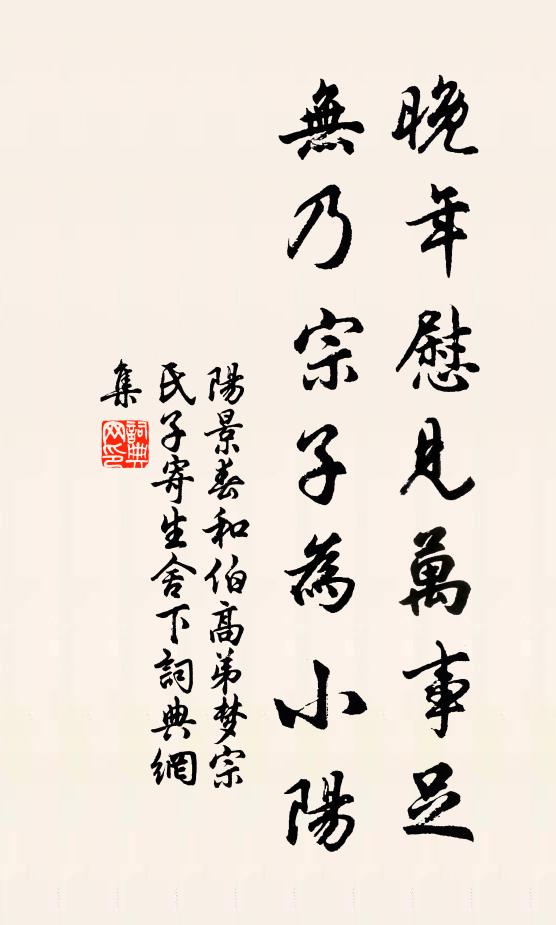 晚年慰見萬事足
無乃宗子為小陽
陽景春和伯高弟梦宗
氏子寄生舍下詞典網
集
詞典網印